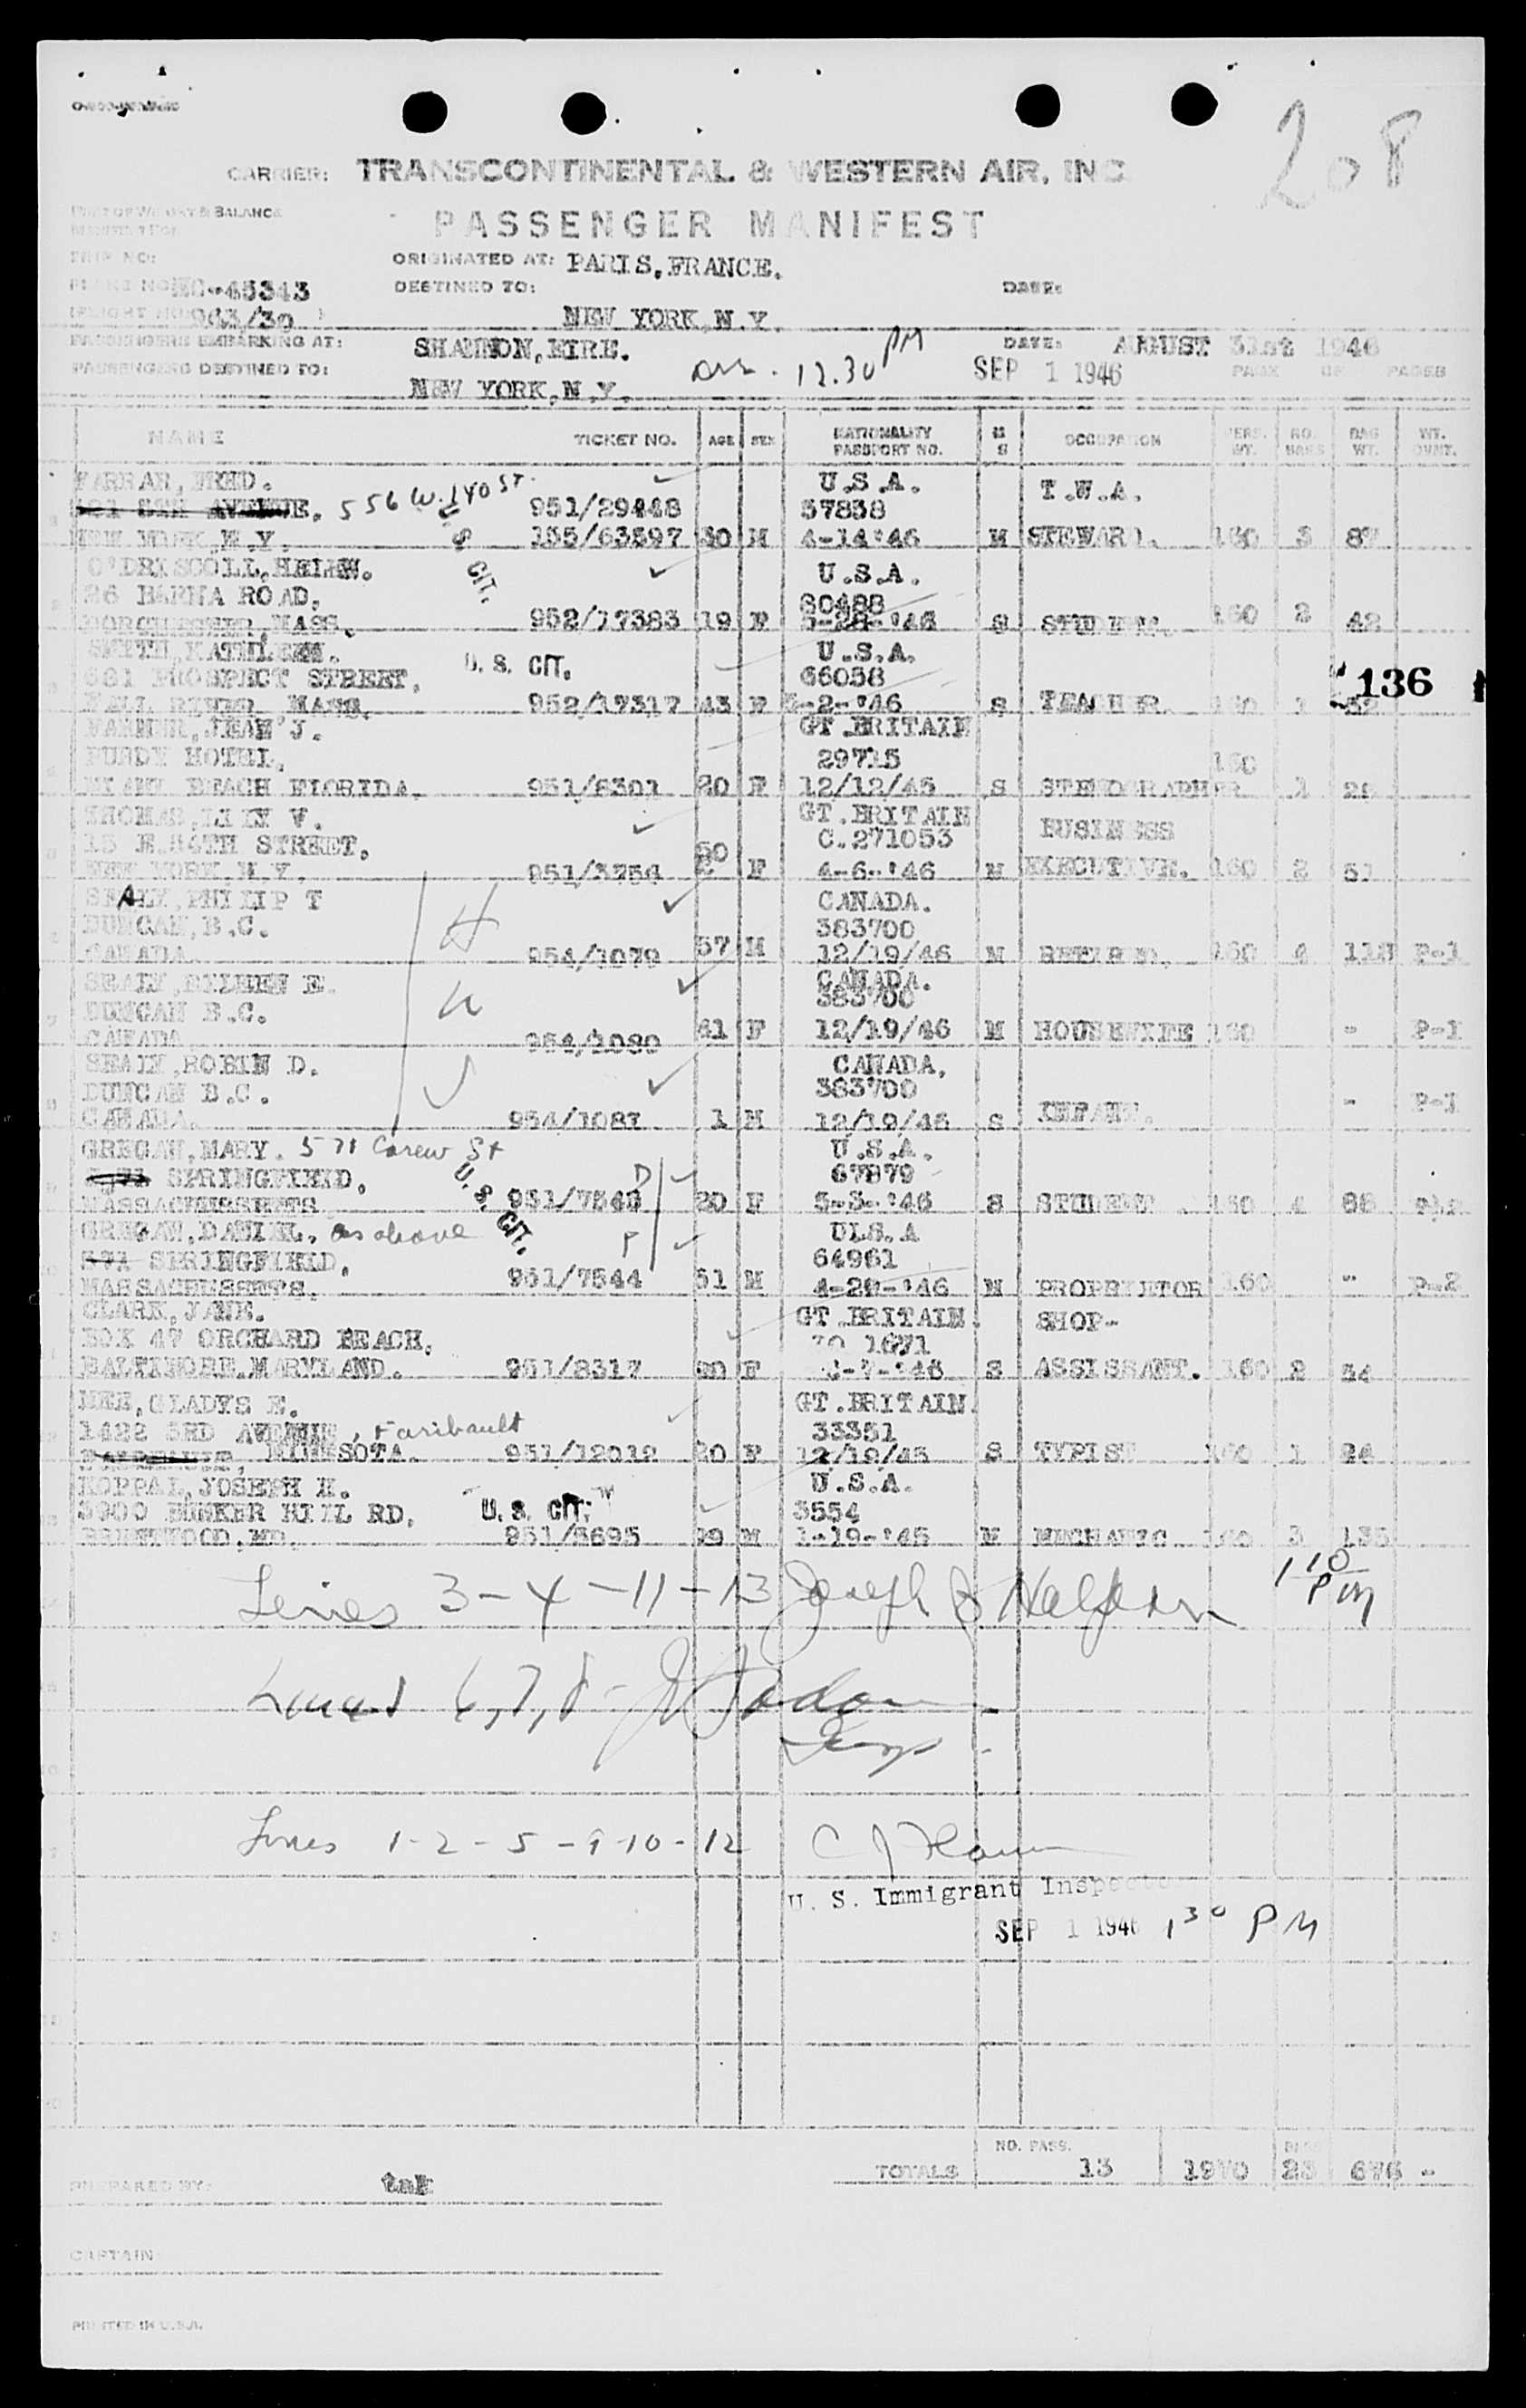 208
CARRIER: TRANSCONTINENTAL & WESTERN AIR, INC
PASSENGER MANIFEST
ORIGINATED AT: PARIS, FRANCE.
45343 DESTINED TO: DATE:
NEW YORK, N.Y.
PASSENGERS EMBARKING AT: SHANNON, EIRE. DATE: AUGUST 31st 1946
PASSENGERS DESTINED TO: NEW YORK, N.Y. arr. 12.30 PM SEP 1 1946 PAGE OF PAGES
NAME TICKET NO. AGE SEX NATIONALITY PASSPORT NO. M S OCCUPATION PERS. WT. NO. BAGS BAG WT. WT. OVWT.
FARRAR, FRED. U.S.A. T.W.A.
AVENUE. 556 W. 140 ST. 951/29448 57838
NEW YORK, N.Y. U.S. CIT. 155/63597 30 M 4-14-'46 M STEWARD. 160 3 87
O'DRISCOLL, HELEN. U.S.A.
26 BARNA ROAD. 80488
DORCHESTER, MASS. 952/17383 19 F -28-'46 S STUDENT. 160 2 42
SMITH, KATHLEEN. U.S. CIT. U.S.A.
681 PROSPECT STREET. 66058 136
FALL RIVER MASS. 952/17317 43 F -2-'46 S TEACHER. 160 1 52
FARMER, JEAN J. GT. BRITAIN
PURDY HOTEL. 29715 160
MIAMI BEACH FLORIDA. 951/8301 20 F 12/12/45 S STENOGRAPHER 1 29
THOMAS, LILY V. GT. BRITAIN BUSINESS
15 E. 54TH STREET. C.271053
NEW YORK, N.Y. 951/3254 50 F 4-6-'46 M EXECUTIVE. 160 2 51
SEALY, PHILIP T CANADA.
DUNCAN, B.C. 383700
CANADA. 954/1079 57 M 12/19/46 M RETIRED. 160 4 118 P-1
SEALY, EILEEN E. CANADA.
DUNCAN B.C. 383700
CANADA 954/1080 41 F 12/19/46 M HOUSEWIFE 160 - P-1
SEALY, ROBIN D. CANADA.
DUNCAN B.C. 383700
CANADA. 954/1081 1 M 12/19/46 S INFANT. - P-1
GREGAN, MARY. 571 Carew St U.S.A.
SPRINGFIELD. 67879
MASSACHUSSETTS U.S. CIT. 951/7543 20 F 5-3-'46 S STUDENT. 160 4 88 P-2
GREGAN, DANIEL. as above ULS.A
571 SPRINGFIELD. 64961
MASSACHUSSETTS. 951/7544 51 M 4-29-'46 M PROPRIETOR 160 - P-2
CLARK, JANE. GT. BRITAIN. SHOP-
BOX 47 ORCHARD BEACH. 1671
BALTIMORE, MARYLAND. 951/8317 20 F -7-'46 S ASSISSANT. 160 2 54
NEE, GLADYS E. GT. BRITAIN.
1422 3RD AVENUE, Faribault 33351
MINNESOTA. 951/12012 20 F 12/19/45 S TYPIST 160 1 24
KOPPAL, JOSEPH H. U.S.A.
3900 BUNKER HILL RD. U.S. CIT. 3554
BRENTWOOD, MD. 951/8695 29 M 1-19-'45 M MECHANIC 160 3 135
Lines 3-4-11-13 Joseph Halpern 1 10 PM
Lines 6,7,8
Insp.
Lines 1-2-5-9-10-12
U. S. Immigrant Inspector
SEP 1 1946 1 30 PM
NO. PASS. BAGS
TOTALS 13 1970 23 676 -
PREPARED BY:
CAPTAIN:
PRINTED IN U.S.A.